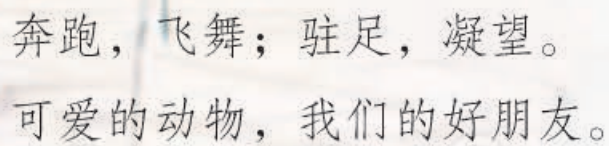 奔跑，飞舞；驻足，凝望。
可爱的动物，我们的好朋友。